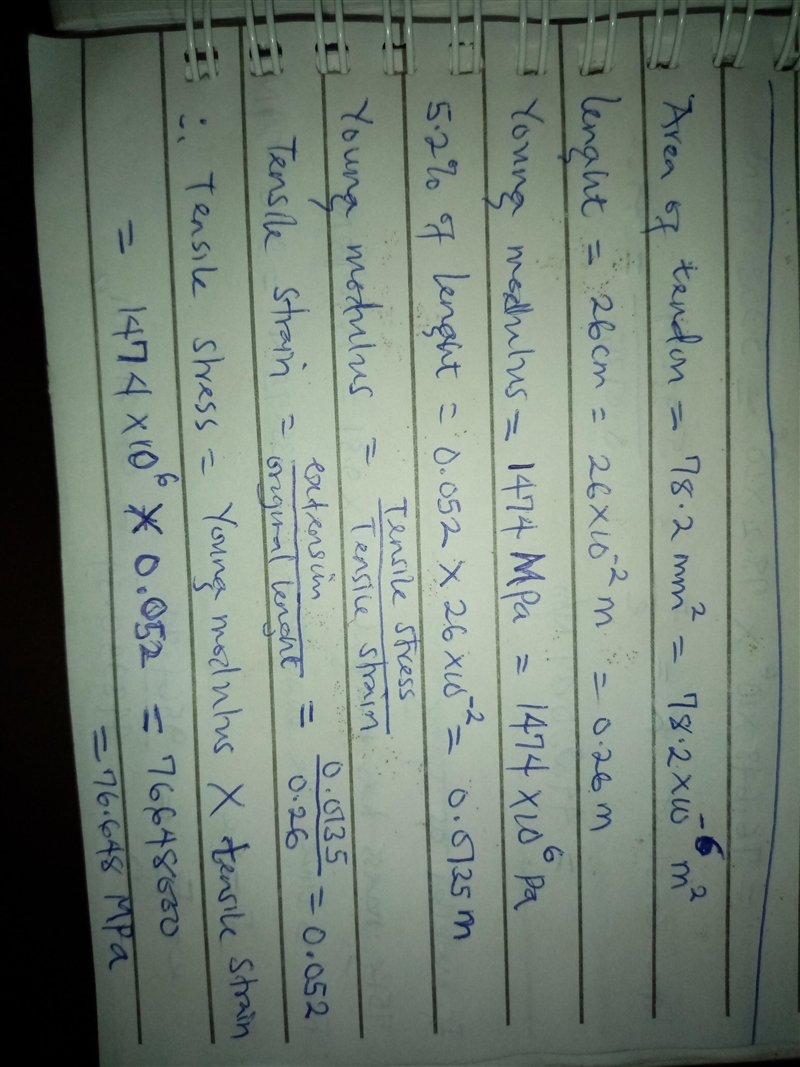 Area of tendon = 78.2 mm² = 78.2 x 10⁻⁶ m²
lenght = 26cm = 26x10⁻² m = 0.26 m
Young modulus = 1474 MPa = 1474 x10⁶ Pa
5.2% of lenght = 0.052 x 26x10⁻² = 0.0135 m
Young modulus = Tensile stress / Tensile strain
Tensile strain = extension / original lenght = 0.0135 / 0.26 = 0.052
∴ Tensile stress = Young modulus x tensile strain
= 1474 x10⁶ x 0.052 = 76648000
= 76.648 MPa